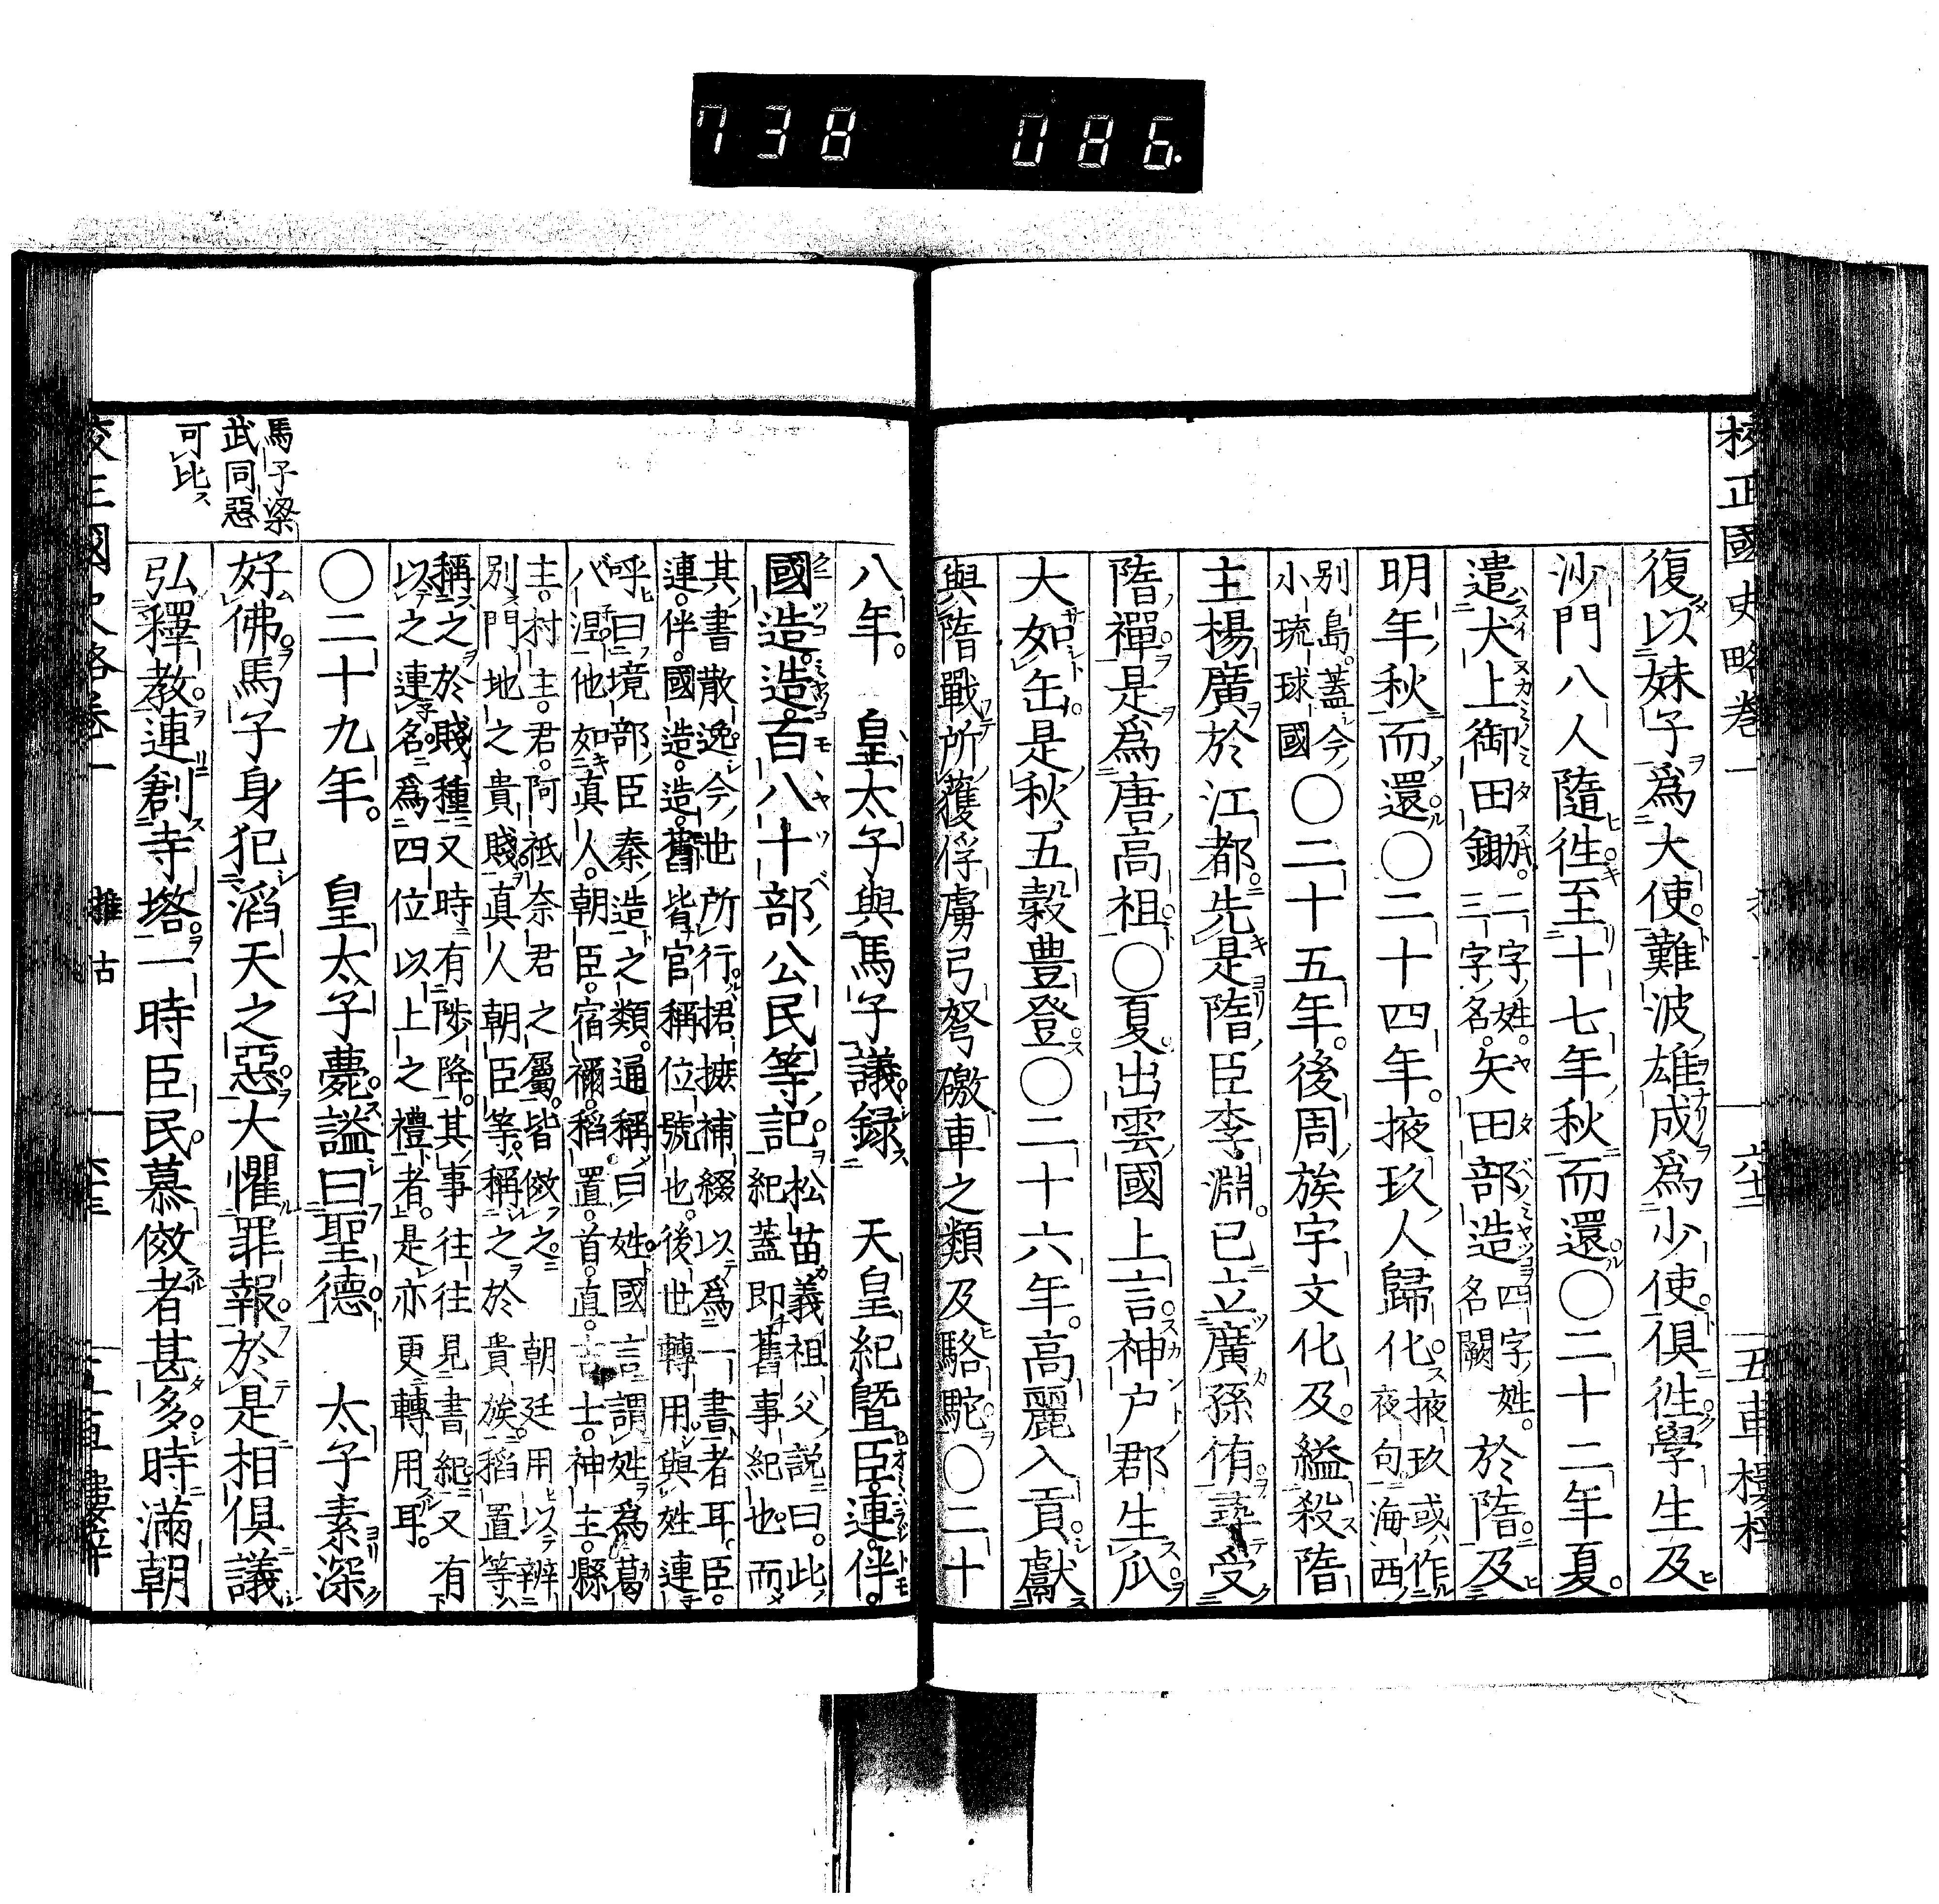 738 086.
校正國史略卷一
五車樓梓
復以妹子爲大使難波雄成爲少使俱徃學生及
沙門八人隨徃至十七年秋而還〇二十二年夏。
遣犬上御田鋤。二字姓。三字名。矢田部造四字姓。名闕於隋及
明年秋而還〇二十四年。掖玖人歸化掖玖或作夜句海西
別島。蓋今小琉球國〇二十五年。後周族宇文化及縊殺隋
主楊廣於江都。先是隋臣李淵。已立廣孫侑尋受
隋禪是爲唐高祖〇夏出雲國上言神戶郡生瓜
大如缶是秋五穀豊登〇二十六年。高麗入貢獻
與隋戰所獲俘虜弓弩礮車之類及駱駝〇二十
八年。 皇太子與馬子議録 天皇紀曁臣。連。伴。
國造。造。百八十部公民等記松苗義祖父説曰。此紀蓋即舊事紀也而
其書散逸今世所行捃摭補綴以爲一書者耳。臣。
連。伴。國造。造。舊皆官稱位號也。後世轉用與姓連
呼曰境部臣秦造之類。通稱曰姓國言謂姓爲葛
バ子湼他如眞人。朝臣。宿禰。稻置。首。直。士。神主。縣
主。村主。君。阿祇奈君之屬。皆傚之 朝廷用以辨
別門地之貴賤眞人朝臣等稱之於貴族稻置等
稱之於賤種又時有陟降。其事往往見書紀又有
以之連名爲四位以上之禮者。是亦更轉用耳。
〇二十九年。 皇太子薨謚曰聖德 太子素深
好佛。馬子身犯滔天之惡大懼罪報於是相俱議
弘釋教連創寺塔。一時臣民慕傚者甚多時滿朝
馬子梁
武同惡
可比
推古